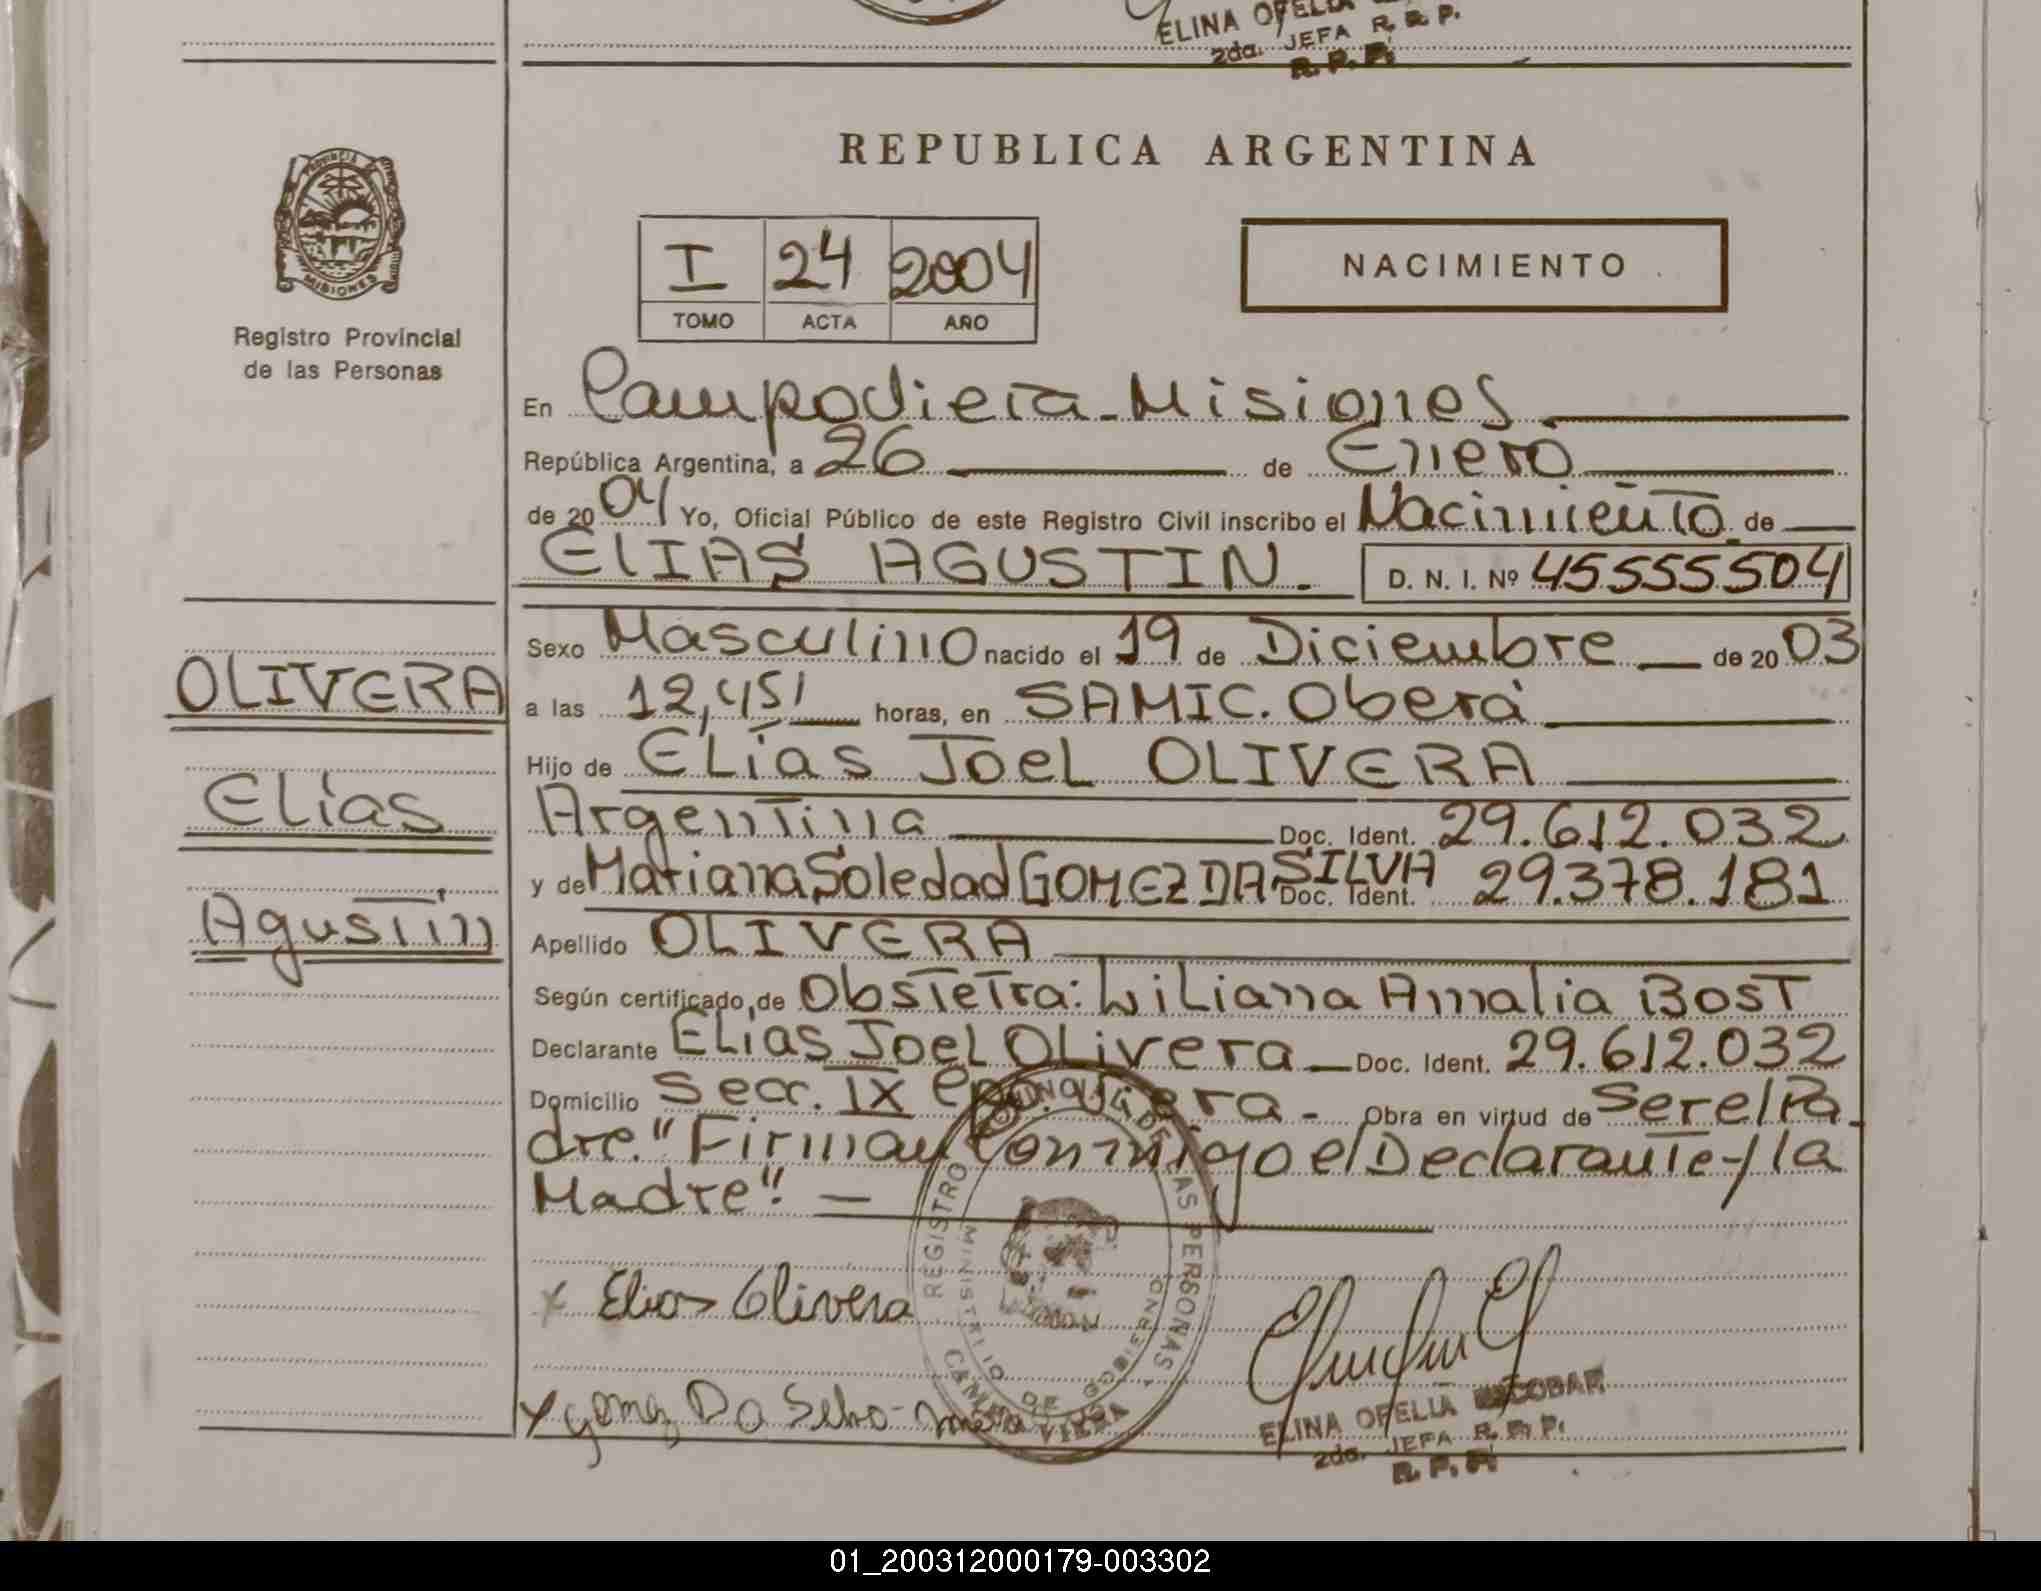 ELINA OFELIA
2da. JEFA R. R. P.
R. P. P.
REPUBLICA ARGENTINA
PROVINCIA DE MISIONES
Registro Provincial
de las Personas
I 24 2004
TOMO ACTA AÑO
NACIMIENTO
En Campo Viera - Misiones
República Argentina, a 26 de Enero
de 2004 Yo, Oficial Público de este Registro Civil inscribo el Nacimiento de
ELIAS AGUSTIN. D. N. I. Nº 45555504
Sexo Masculino nacido el 19 de Diciembre de 2003
a las 12,45 horas, en SAMIC. Oberá
Hijo de Elías Joel OLIVERA
Argentina Doc. Ident. 29.612.032
y de Mariana Soledad GOMEZ DA SILVA Doc. Ident. 29.378.181
Apellido OLIVERA
Según certificado de Obstetra: Liliana Amalia Bost
Declarante Elias Joel Olivera Doc. Ident. 29.612.032
Domicilio Secc. IX Viera - Obra en virtud de Ser el Pa-
dre. "Firman Conmigo el Declarante y la
Madre". —
OLIVERA
Elías
Agustín
x Elias Olivera
x Gomez Da Silva
REGISTRO DE LAS PERSONAS
MINISTERIO DE GOBIERNO
CAMPO VIERA
ELINA OFELIA ESCOBAR
2da. JEFA R. R. P.
R. P. P.
01_200312000179-003302